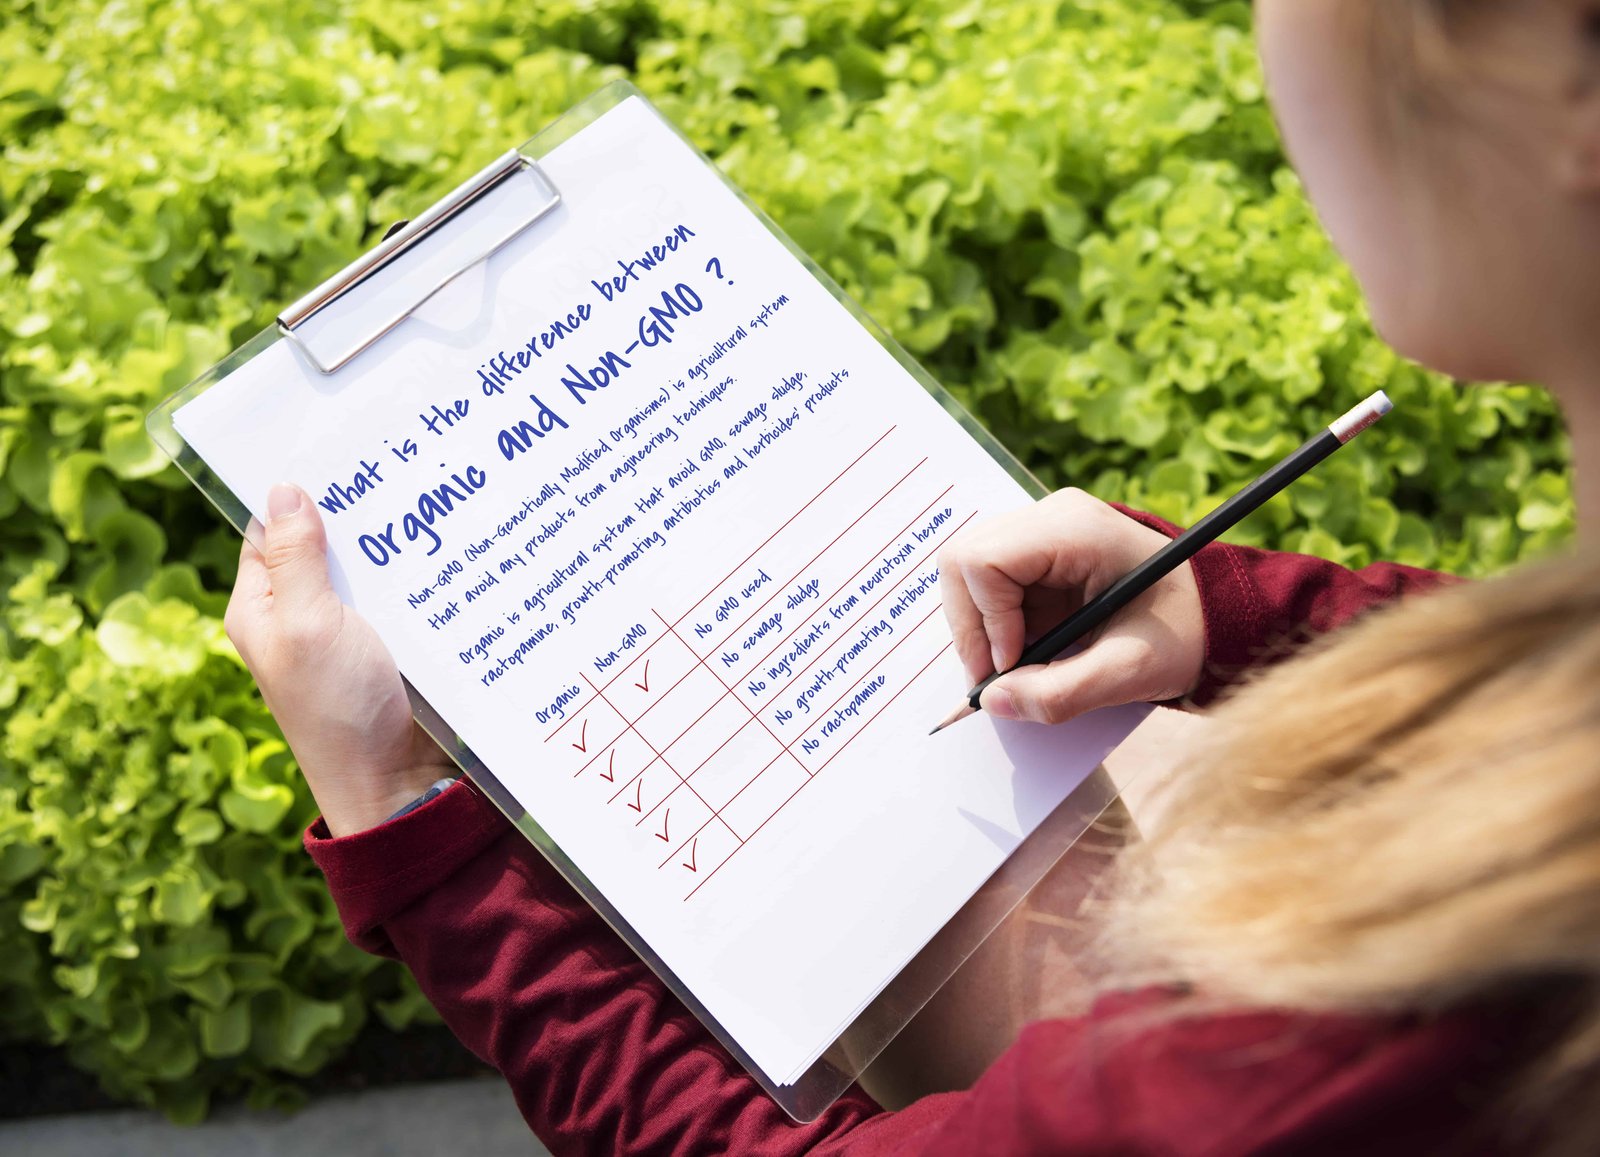 What is the difference between
Organic and Non-GMO ?
Non-GMO (Non-Genetically Modified Organisms) is agricultural system
that avoid any products from engineering techniques.
Organic is agricultural system that avoid GMO, sewage sludge,
ractopamine, growth-promoting antibiotics and herbicides' products
Organic Non-GMO
✓ ✓ No GMO used
✓ No sewage sludge
✓ No ingredients from neurotoxin hexane
✓ No growth-promoting antibiotics
✓ No ractopamine